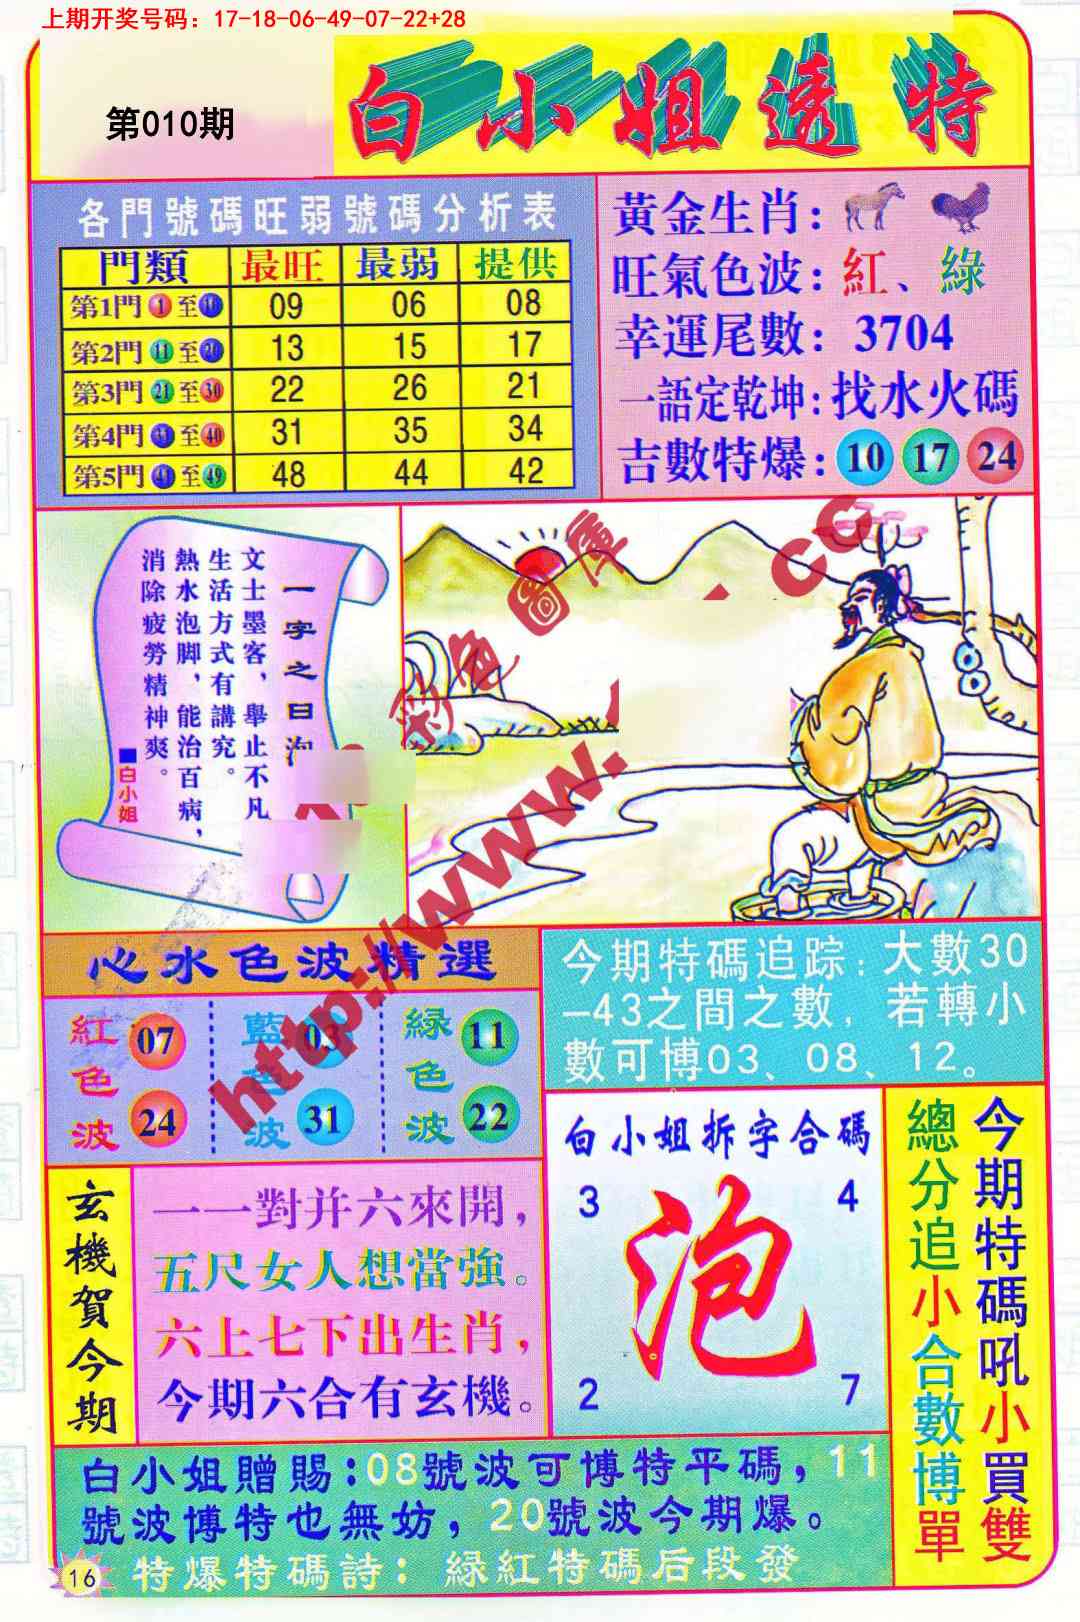 上期开奖号码：17-18-06-49-07-22+28
第010期
白小姐透特
各門號碼旺弱號碼分析表
門類 最旺 最弱 提供
第1門 1 至 10 09 06 08
第2門 11 至 20 13 15 17
第3門 21 至 30 22 26 21
第4門 31 至 40 31 35 34
第5門 41 至 49 48 44 42
黃金生肖：
旺氣色波：紅、綠
幸運尾數：3704
一語定乾坤：找水火碼
吉數特爆：10 17 24
一字之曰泡
文士墨客，舉止不凡
生活方式有講究。
熱水泡脚，能治百病，
消除疲勞精神爽。
■白小姐
彩色圖庫
http://www.
.cc
心水色波精選
紅色波 07 24
藍色波 03 31
緑色波 11 22
今期特碼追踪：大數30
-43之間之數，若轉小
數可博03、08、12。
白小姐拆字合碼
3 4
泡
2 7
今期特碼吼小買雙
總分追小合數博單
玄機賀今期
一一對并六來開，
五尺女人想當強。
六上七下出生肖，
今期六合有玄機。
白小姐贈賜：08號波可博特平碼，11
號波博特也無妨，20號波今期爆。
特爆特碼詩：緑紅特碼后段發
16